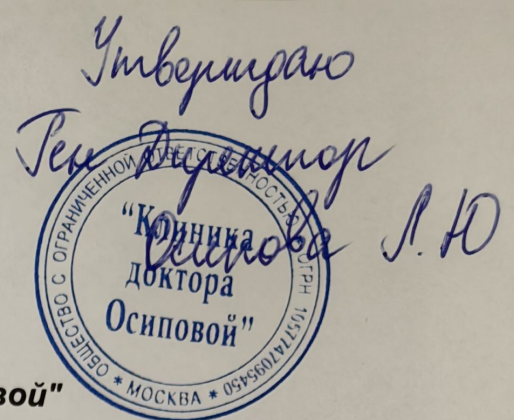 Утверждаю
Ген Директор
Осипова Л.Ю
ОБЩЕСТВО С ОГРАНИЧЕННОЙ ОТВЕТСТВЕННОСТЬЮ ОГРН 1057747095450
* МОСКВА *
"Клиника
доктора
Осиповой"
вой"